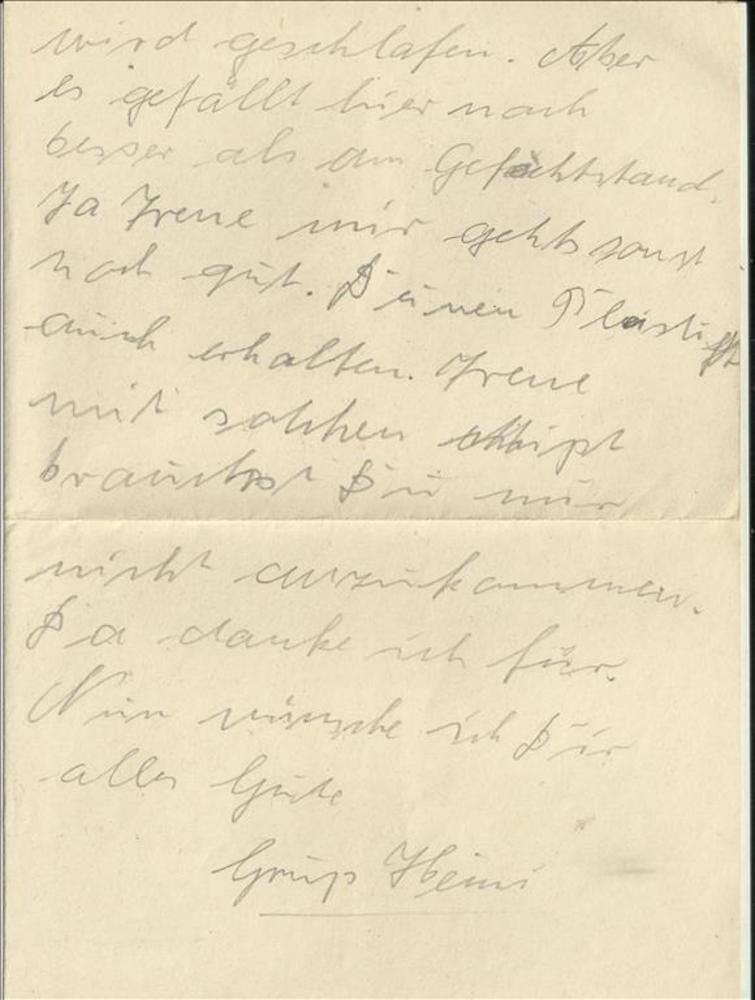 wird geschlafen. Aber
es gefällt hier noch
besser als am Gefechtstand.
Ja Irene mir gehts sonst
noch gut. Deinen
auch erhalten. Irene
mit solchen
brauchst Du mir
nicht anzukommen.
Da danke ich für.
Nun wünsche ich Dir
alles Gute
Gruß Heini